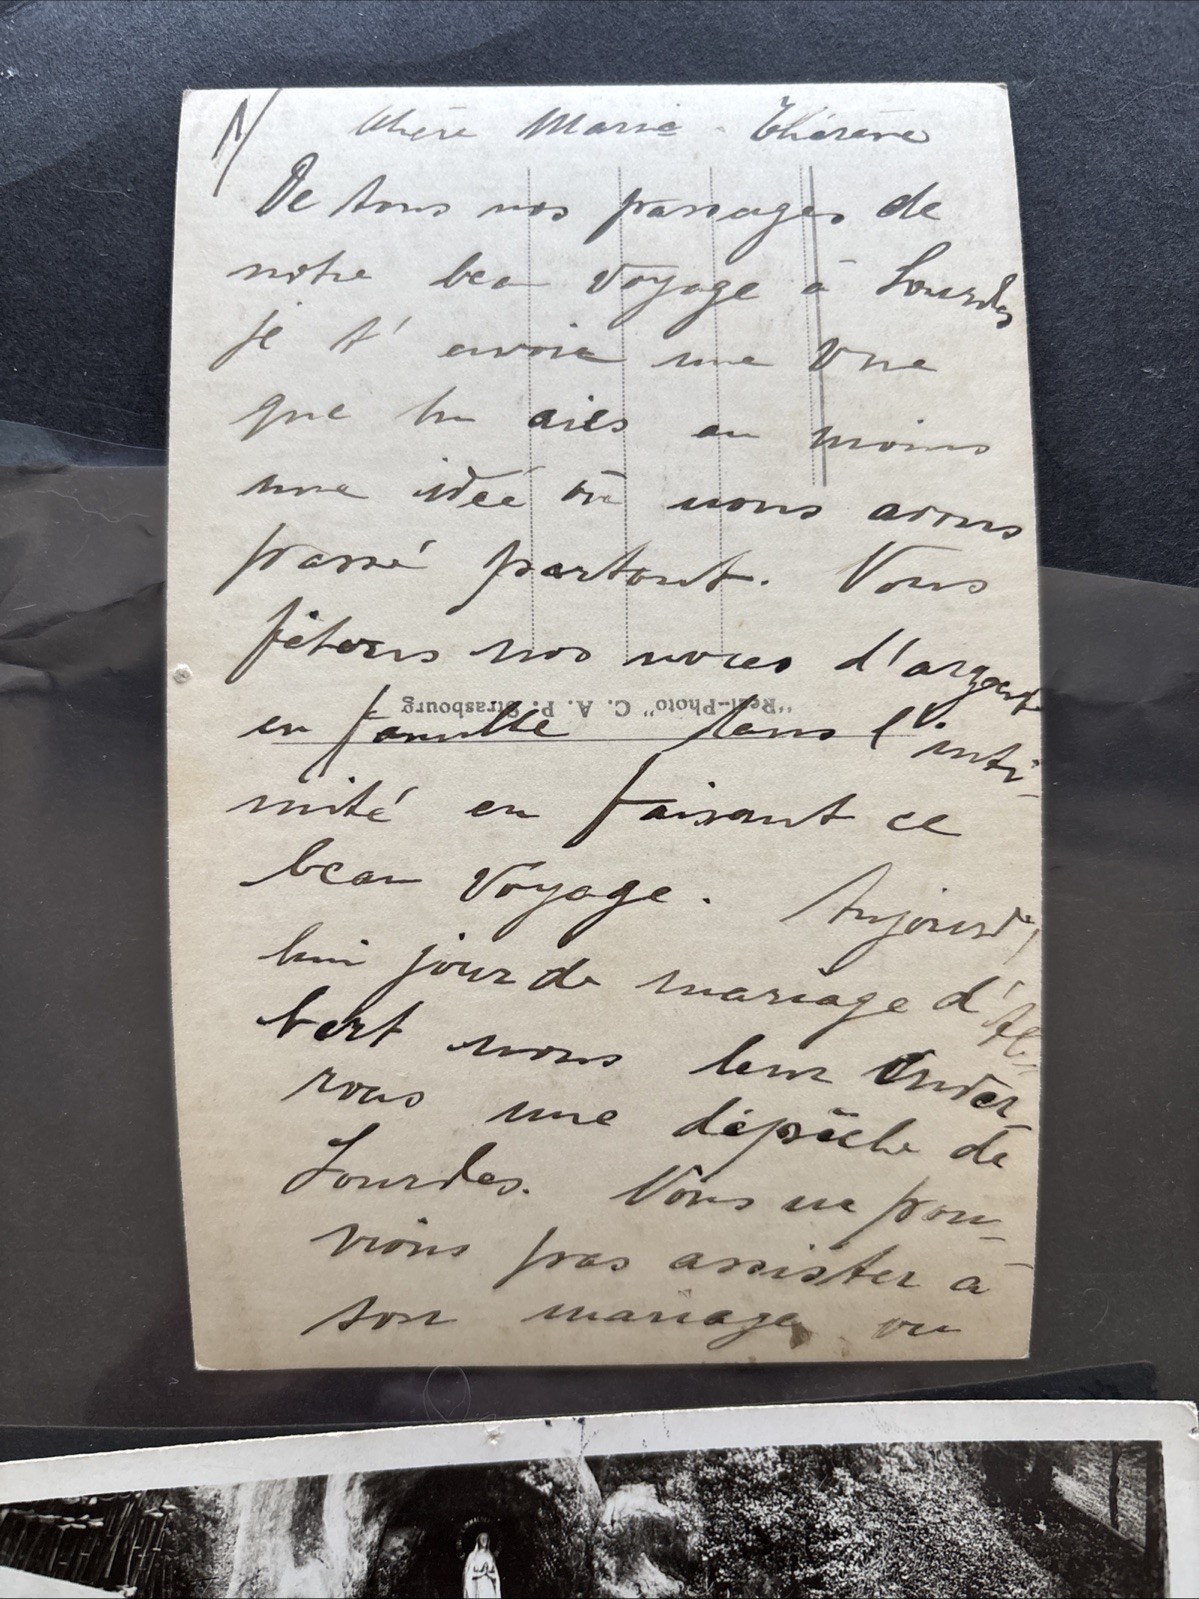 1/ Chère Marie-Thérèse
De tous nos passages de
notre beau voyage à Lourdes
je t'envoie une vue
que tu aies au moins
une idée où nous avons
passé partout. Nous
fêtons nos noces d'argent
en famille dans l'inti-
mité en faisant ce
beau voyage. Aujourd'
hui jour de mariage d'Al-
bert nous leur
rons une dépêche de
Lourdes. Nous ne pou-
vions pas assister à
son mariage ou
"Real-Photo" C. A. P. Strasbourg